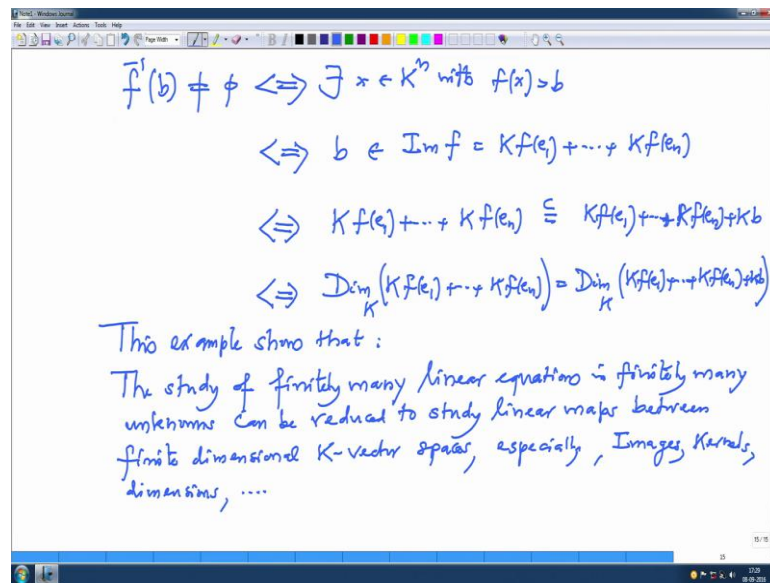 Note1 - Windows Journal
File Edit View Insert Actions Tools Help
Page Width
f⁻¹(b) ≠ φ ⟺ ∃ x ∈ Kⁿ with f(x) = b
⟺ b ∈ Im f = Kf(e₁) + ... + Kf(eₙ)
⟺ Kf(e₁) + ... + Kf(eₙ) ⊆= Kf(e₁) + ... + Kf(eₙ) + Kb
⟺ Dim_K (Kf(e₁) + ... + Kf(eₙ)) = Dim_K (Kf(e₁) + ... + Kf(eₙ) + Kb)
This example show that :
The study of finitely many linear equations in finitely many
unknowns can be reduced to study linear maps between
finite dimensional K-vector spaces, especially, Images, Kernels,
dimensions, ....
15/15
15
17:29
08-09-2016